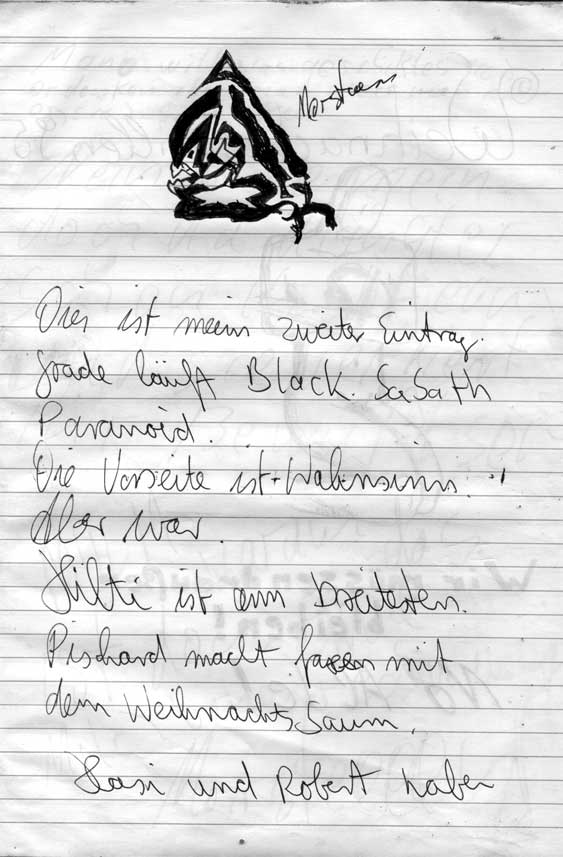 Dies ist mein zweiter Eintrag.
Grade läuft Black SaSath
Paranoid.
Die Vorseite ist Wahnsinn.
Aber war.
Hilti ist am breitesten.
macht faxen mit
dem Weihnachtsbaum.
Hasi und Robert haben